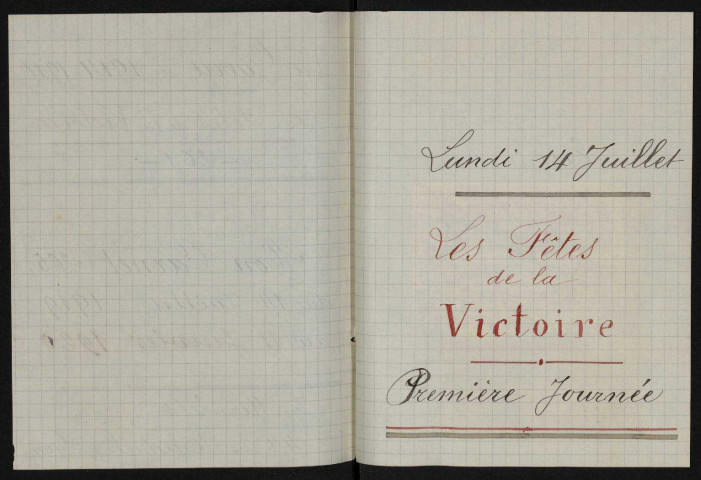 Lundi 14 Juillet
Les Fêtes
de la
Victoire
Première Journée